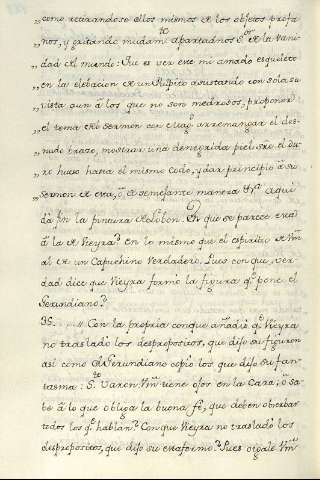 „como retirandose ellos mismos de los objetos profa
„nos, y gritando mudamte apartadnos Sor de la vani
„dad del mundo: Fue es ver este mi amado esqueleto
„en la elebacion de un Pulpito asustando con sola su
„vista aun á los que no son medrosos, proponer
„el tema del sermon con elago arremangar el des
„nudo brazo, mostrar una denegrida piel sre. el du
„ro hueso hasta el mismo codo, y dar principio á su
„sermon de esta, ó de semejante manera &a. aqui
dá fin la pintura del obon. En que se parece esta
á la de Vieyra? en lo mismo que el espiritu de Vm
al de un Capuchino Verdadero. Pues con que, ver-
dad dice que Vieyra formó la figura qe. pone el
Gerundiano?
35. „ Con la propria conque añadió qe. Vieyra
no trasladó los despropositos, que dijo su figuron
asi como el Gerundiano copió los que dijo su fan-
tasma: Sto. Varon Vm tiene ojos en la Cara; ó sa-
be á lo que obliga la buena fe, que deben observar
todos los qe. hablan? Con que Vieyra no trasladó los
despropositos, que dijo su estafermo? Pues oigale Vm